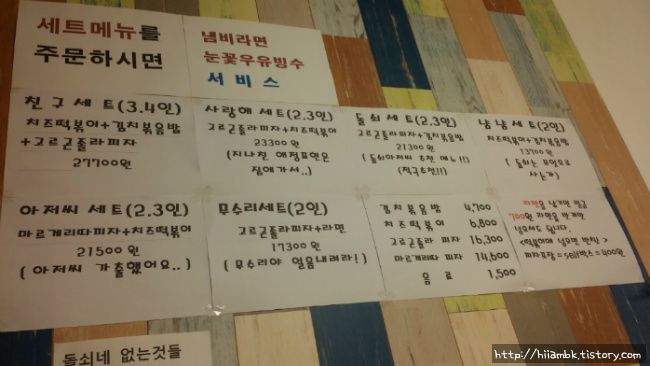 세트메뉴를
주문하시면
냄비라면
눈꽃우유빙수
서비스
친구세트(3.4인)
치즈떡볶이+김치볶음밥
+고르곤졸라피자
27700원
사랑해 세트(2.3인)
고르곤졸라피자+치즈떡볶이
23300원
(지나친 애정표현은
집에가서..)
돌쇠세트(2.3인)
고르곤졸라피자+김치볶음밥
21300원
(돌쇠아저씨 추천 메뉴!!)
(적극추천!!)
냠냠세트(2인)
치즈떡볶이+김치볶음밥
(돌쇠는
사는가)
아저씨 세트(2.3인)
마르게리따피자+치즈떡볶이
21500원
(아저씨 가출했어요..)
무수리세트(2인)
고르곤졸라피자+라면
17300원
(무수리야 얼음내려라!)
김치볶음밥 4,700
치즈떡볶이 6,800
고르곤졸라 피자 16,300
마르게리따 피자 14,600
음료 1,500
700원
<떡볶이에 넣으면 반칙>
피자포장=self박스=400원
돌쇠네 없는것들
http://hiiambk.tistory.com